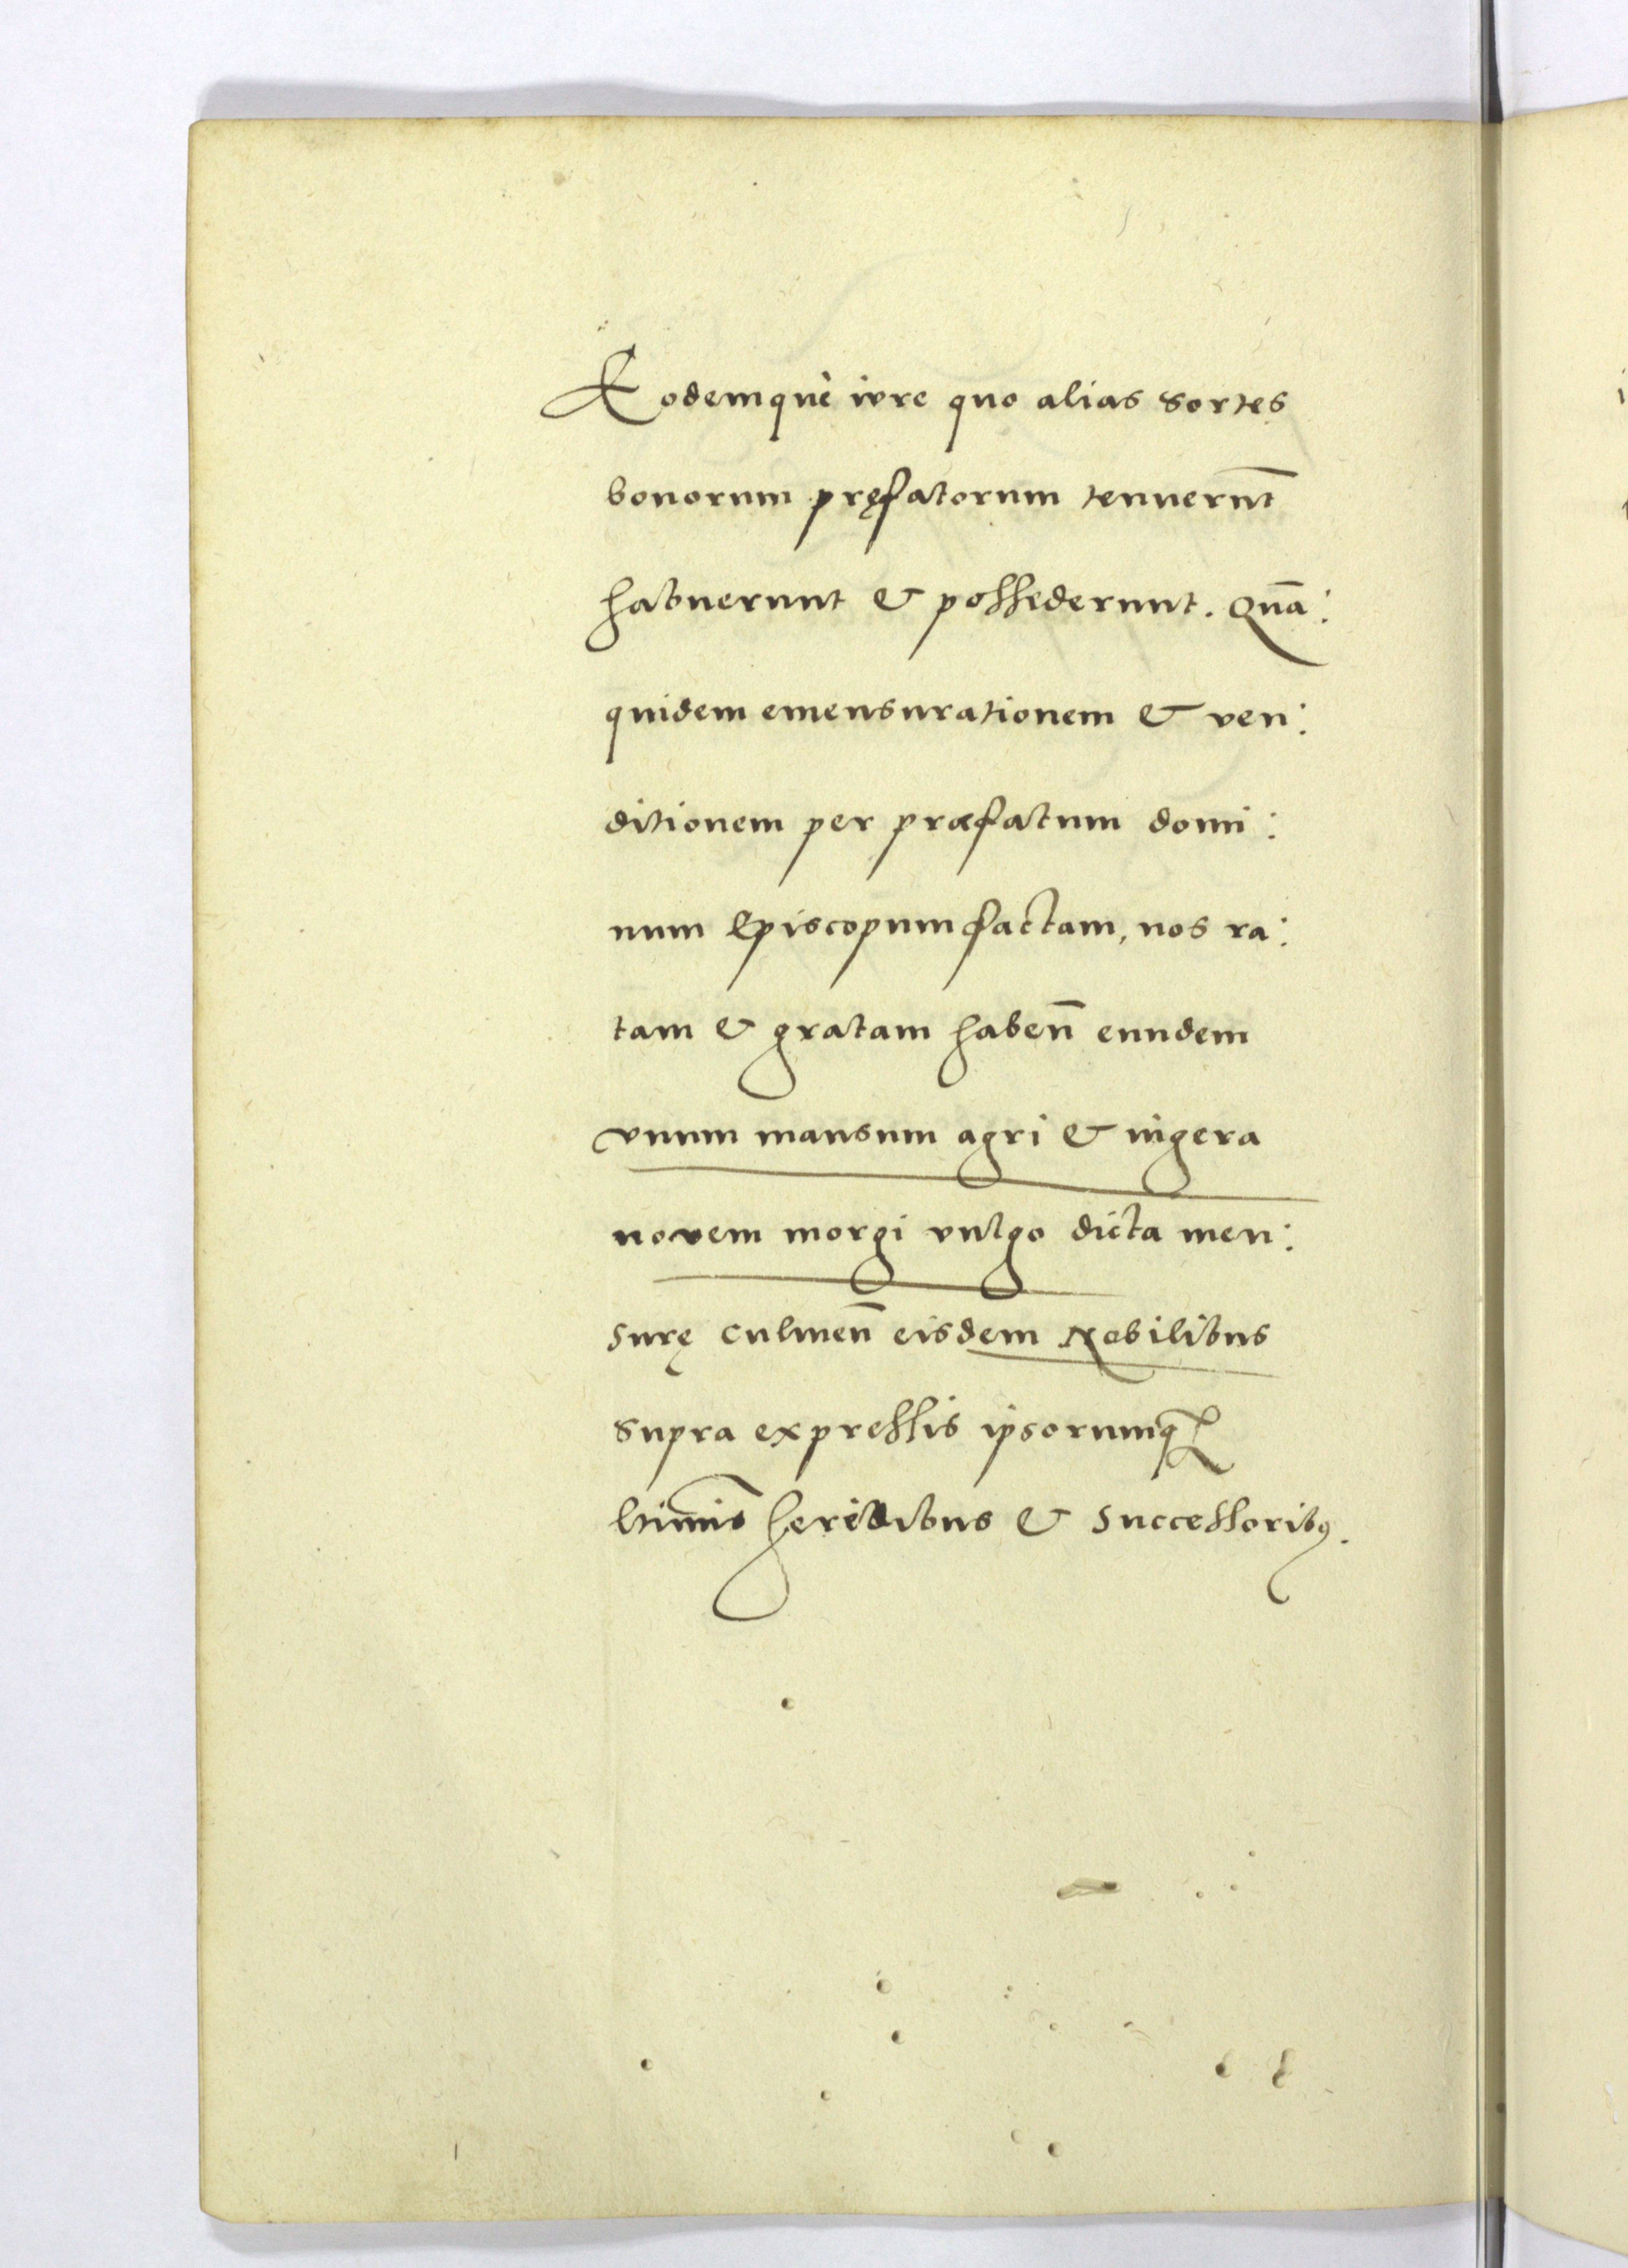 Eodemquè iure quo alias sortes
bonorum pręfatorum tenuerūt
habuerunt & possederunt. Quā:
quidem emensurationem & ven:
ditionem per præfatum domi:
num Episcopum factam, nos ra:
tam & gratam habeñ eundem
vnum mansum agri & iugera
novem morgi vulgo dicta men:
surę culmeñ eisdem Nobilibus
supra expressis ipsorumq3
ltimis̄ heredibus & successorib9.